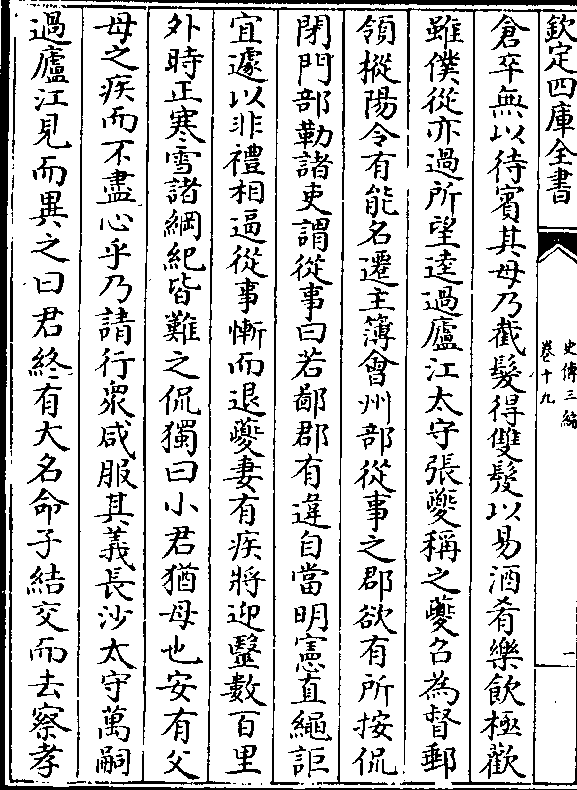 欽定四庫全書
史傳三編
卷十九
一
倉卒無以待賓其母乃截髮得雙髲以易酒肴樂飲極歡
雖僕從亦過所望逵過廬江太守張夔稱之夔召為督郵
領樅陽令有能名遷主簿會州部從事之郡欲有所按侃
閉門部勒諸吏謂從事曰若鄙郡有違自當明憲直繩詎
宜遽以非禮相逼從事慚而退夔妻有疾將迎毉數百里
外時正寒雪諸綱紀皆難之侃獨曰小君猶母也安有父
母之疾而不盡心乎乃請行衆咸服其義長沙太守萬嗣
過廬江見而異之曰君終有大名命子結交而去察孝